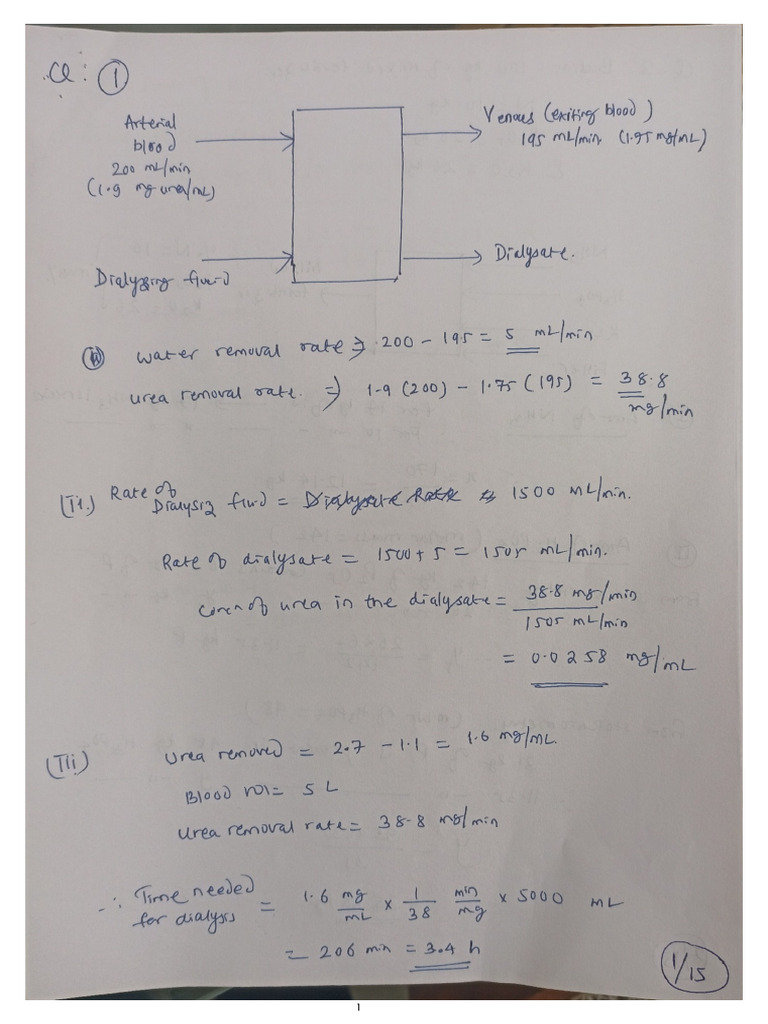 Q: 1
Arterial
blood
200 mL/min
(1.9 mg urea/mL)
Venous (exiting blood)
195 mL/min (1.75 mg/mL)
Dialyzing fluid
Dialysate.
(i) water removal rate ⇒ 200 - 195 = 5 mL/min
urea removal rate. ⇒ 1.9 (200) - 1.75 (195) = 38.8
mg/min
(Ii.) Rate of
Dialysiz fluid = 1500 mL/min.
Rate of dialysate = 1500+5 = 1505 mL/min.
concn of urea in the dialysate = 38.8 mg/min
1505 mL/min
= 0.0258 mg/mL
(Iii) Urea removed = 2.7 - 1.1 = 1.6 mg/mL
Blood vol = 5 L
Urea removal rate = 38.8 mg/min
∴ Time needed
for dialysis = 1.6 mg/mL × 1/38 min/mg × 5000 mL
= 206 min = 3.4 h
1/15
1